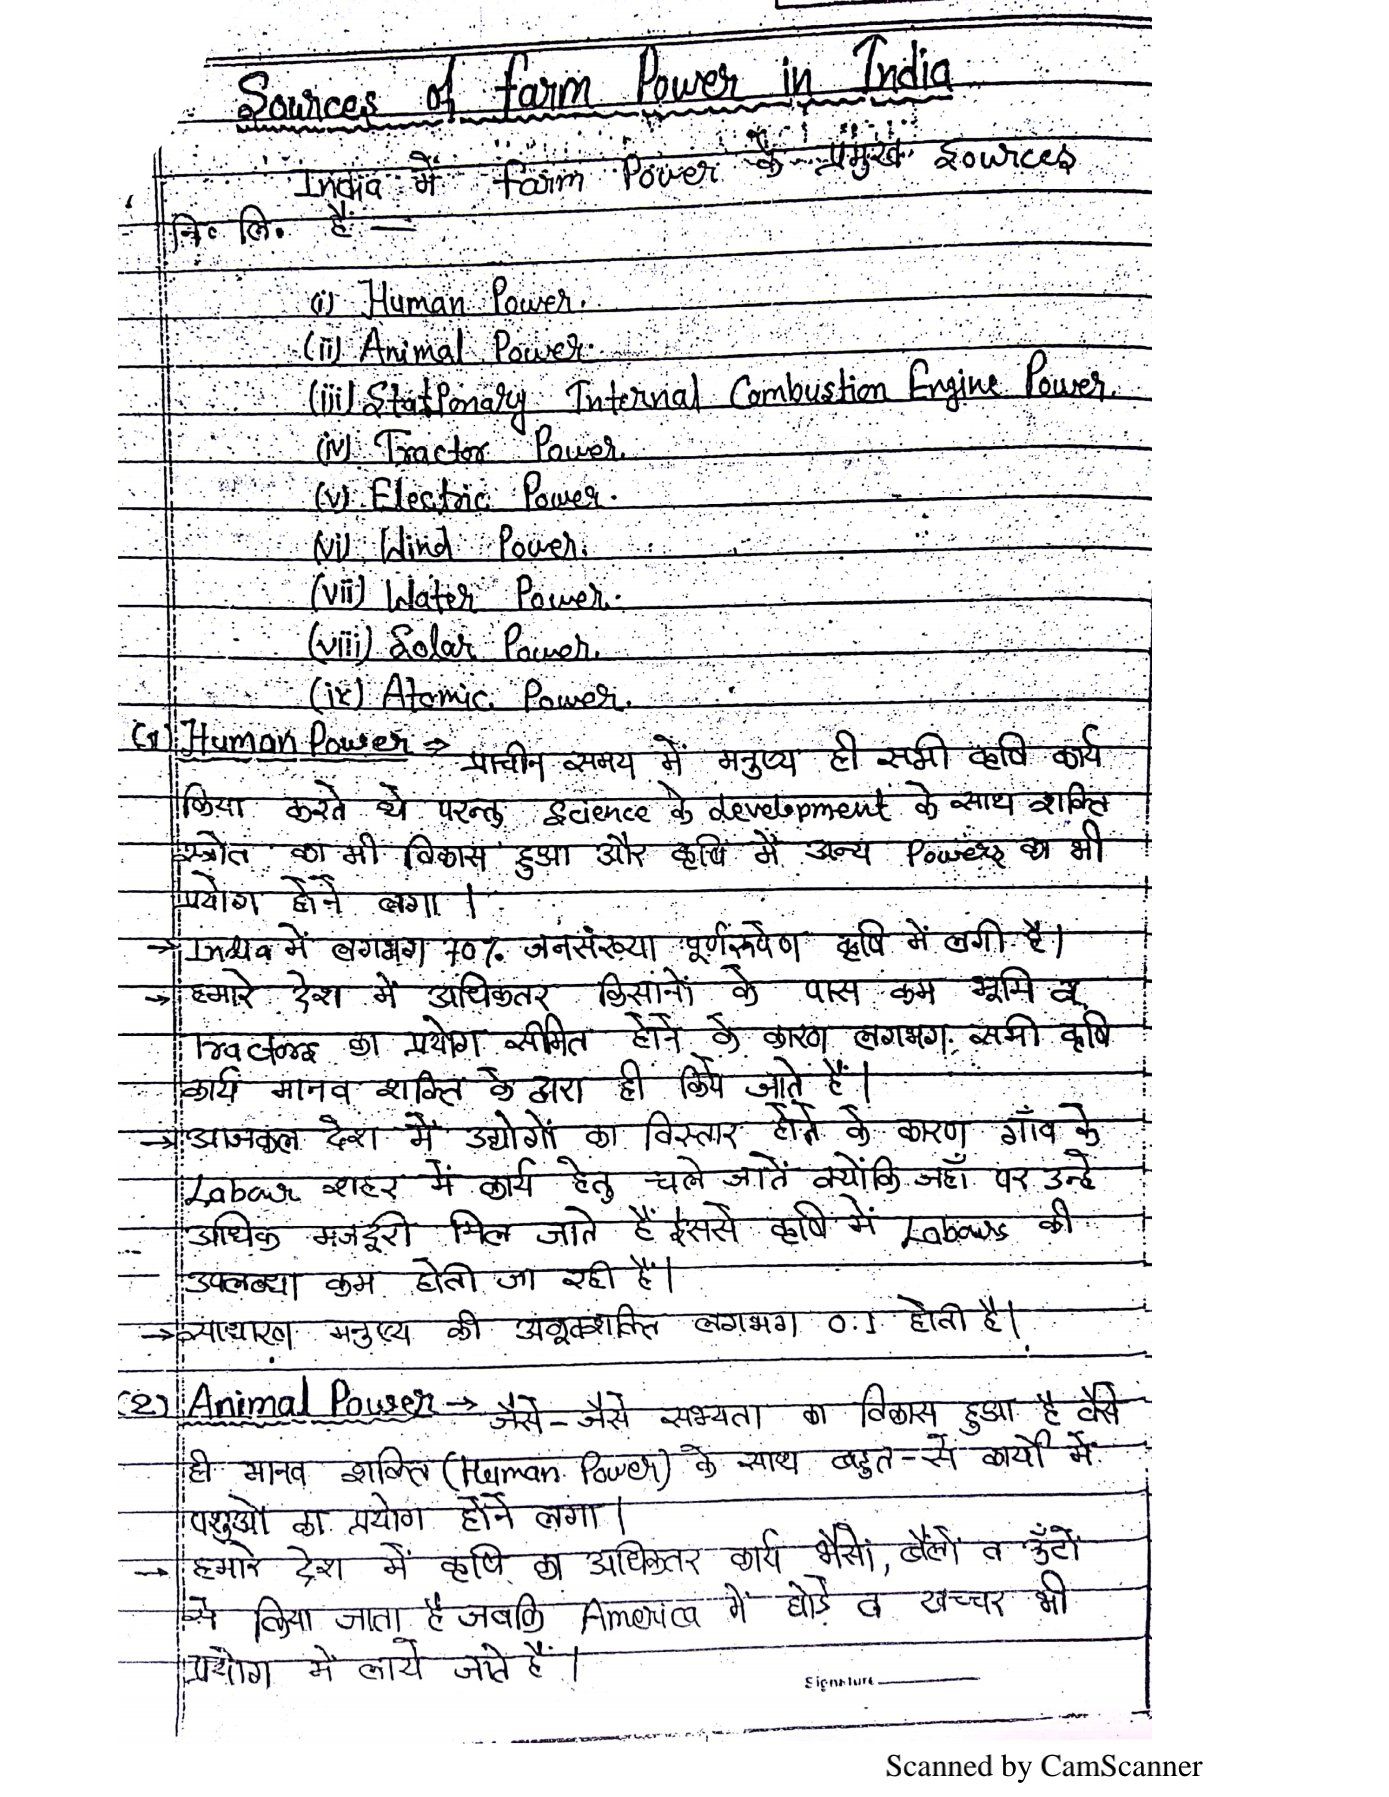 Sources of farm Power in India
India में farm Power के प्रमुख Sources
नि॰ लि॰ हैं —
(i) Human Power.
(ii) Animal Power.
(iii) Stationary Internal Combustion Engine Power.
(iv) Tractor Power.
(v) Electric Power.
(vi) Wind Power.
(vii) Water Power.
(viii) Solar Power.
(ix) Atomic Power.
(1) Human Power ⇒ प्राचीन समय में मनुष्य ही सभी कृषि कार्य
किया करते थे परन्तु Science के development के साथ शक्ति
स्त्रोत का भी विकास हुआ और कृषि में अन्य Powers का भी
प्रयोग होने लगा।
→ India में लगभग 70% जनसंख्या पूर्णरूपेण कृषि में लगी है।
→ हमारे देश में अधिकतर किसानों के पास कम भूमि व
Tractors का प्रयोग सीमित होने के कारण लगभग सभी कृषि
कार्य मानव शक्ति के द्वारा ही किये जाते हैं।
→ आजकल देश में उद्योगों का विस्तार होने के कारण गाँव के
Labour शहर में कार्य हेतु चले जातें क्योंकि जहाँ पर उन्हे
अधिक मजदूरी मिल जाते हैं इससे कृषि में Labours की
उपलब्धा कम होती जा रही है।
→ साधारण मनुष्य की अश्वशक्ति लगभग 0.1 होती है।
(2) Animal Power → जैसे-जैसे सभ्यता का विकास हुआ है वैसे
ही मानव शक्ति (Human Power) के साथ बहुत-से कार्यों में
पशुओं का प्रयोग होने लगा।
→ हमारे देश में कृषि का अधिकतर कार्य भैसों, बैलों व ऊँटों
से किया जाता है जबकि America में घोडे व खच्चर भी
प्रयोग में लाये जाते हैं।
Signature
Scanned by CamScanner